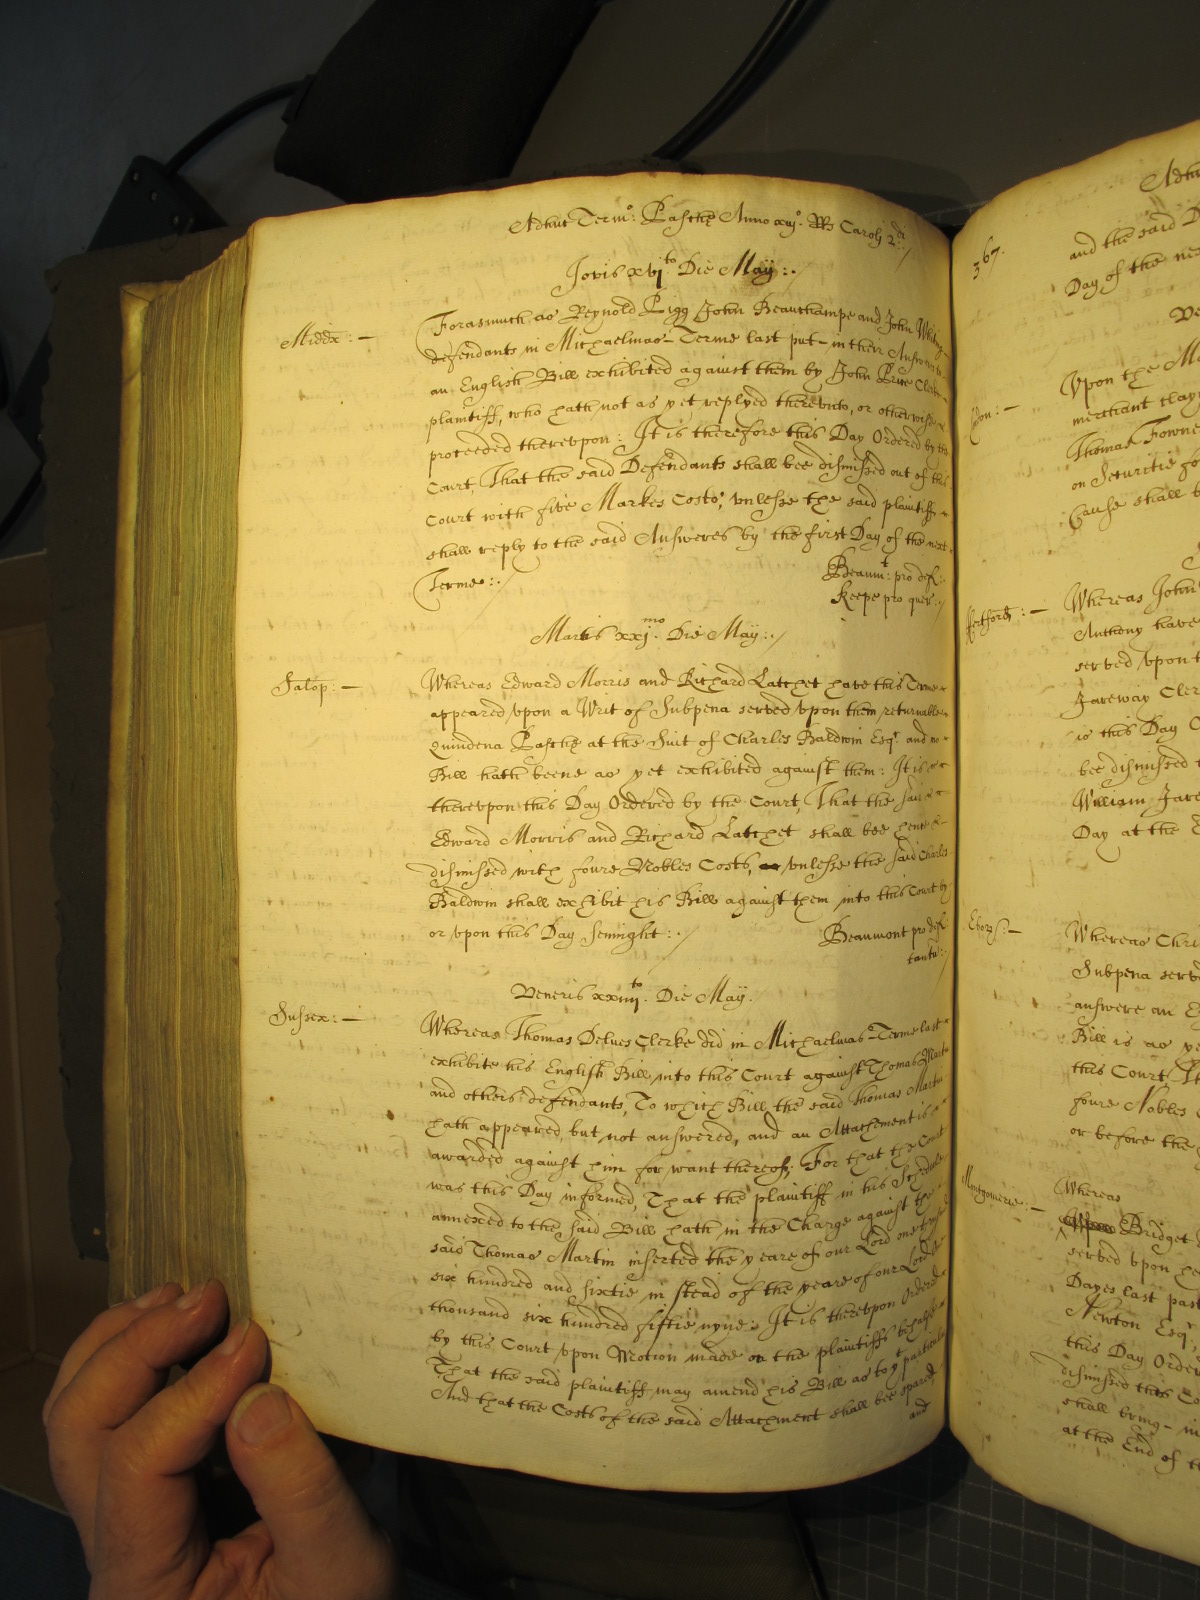 Adhuc Termo: Pasche Anno xiijo. Rs Caroli 2di:/
Jovis xvjto Die May:.
Middx: — Forasmuch as Reynold Pigg John Beauchampe and John Whiting
defendants in Michaelmas Terme last put in their Answeres
an English Bill exhibited against them by John Price Clerke
plaintiff, who hath not as yet replyed therevnto, or otherwise
proceeded therevpon: It is therefore this Day Ordered by the
Court, That the said Defendants shall bee dismissed out of this
Court with five Markes Costs, vnlesse the said plaintiff
shall reply to the said Answeres by the first Day of the next
Terme:./
Beaumt: pro def:
Keepe pro quer:./
Martis xxjmo. Die May:./
Salop: — Whereas Edward Morris and Richard Latchet have this Terme
appeared vpon a Writ of Subpena served vpon them returnable
quindena Pasche at the Suit of Charles Baldwin Esqr. and no
Bill hath beene as yet exhibited against them: It is
therevpon this Day Ordered by the Court, That the said
Edward Morris and Richard Latchet shall bee hence
dismissed with foure Nobles Costs, vnlesse the said Charles
Baldwin shall exhibit his Bill against them into this Court by
or vpon this Day seninght:./
Beaumont pro def:
tantu:./
Veneris xxiiijto. Die May.
Sussex: — Whereas Thomas Delues Clerke did in Michaelmas Terme last
exhibite his English Bill into this Court against Thomas Martin
and others defendants, To which Bill the said Thomas Martin
hath appeared, but not answered, and an Attachement is
awarded against him for want thereof; For that the Court
was this Day informed, That the plaintiff in his Schedule
annexed to the said Bill hath in the Charge against the
said Thomas Martin inserted the yeare of our Lord one thousand
six hundred and sixtie in stead of the yeare of our Lord one
thousand six hundred fiftie nyne: It is therevpon Ordered
by this Court vpon Motion made on the plaintiffs behalfe
That the said plaintiff may amend his Bill as to yt particular
And that the Costs of the said Attachment shall bee spared
and
367.
and the said D
Day of the ne
Vpon the M
merchant clay
Thomas Fowne
on Securitie fo
Cause shall b
Hertford: — Whereas John
Anthony have
served vpon t
Jareway Cler
is this Day O
bee dismissed
William Jare
Day at the E
Ebor: — Whereas Chri
Subpena serv
answere an E
Bill is as ye
this Court It
foure Nobles
or before the
Montgomerie: — Whereas
Bridget
served vpon he
Dayes last past
Newton Esqr.
this Day Order
dismissed this Co
shall bring in
at the End of t